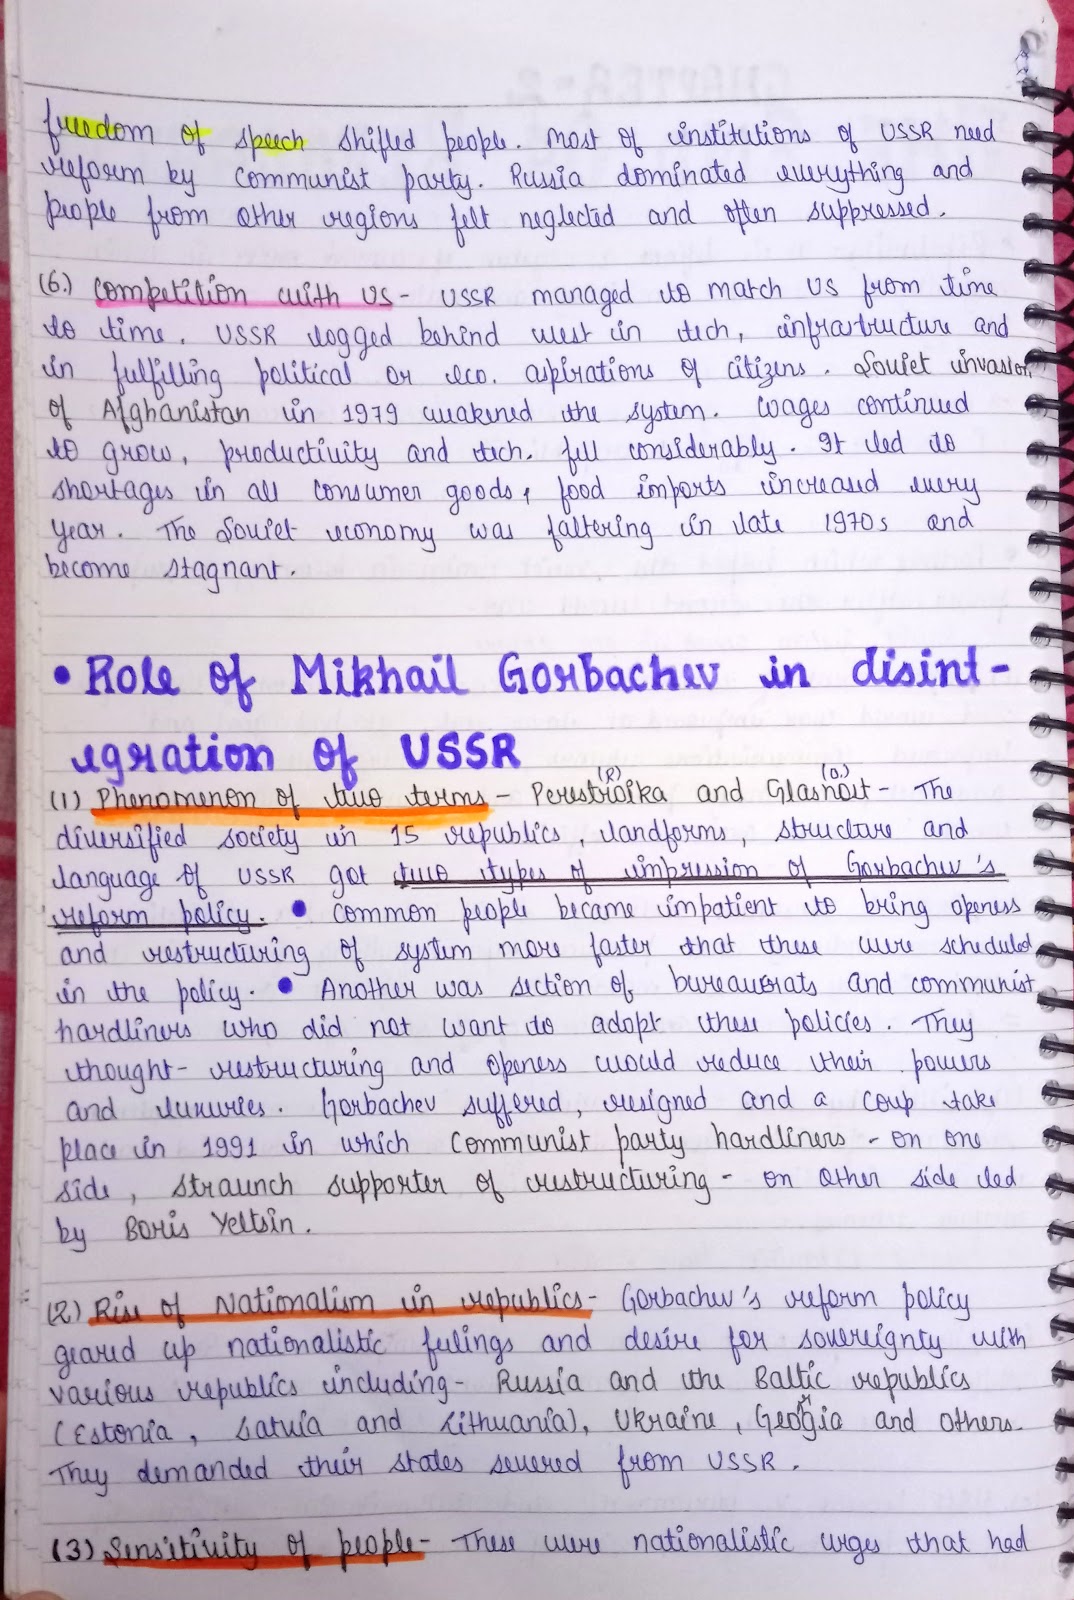 freedom of speech shifled people. Most of institutions of USSR need
reform by communist party. Russia dominated everything and
people from other regions felt neglected and often suppressed.
(6.) Competition with US - USSR managed to match US from time
to time. USSR logged behind west in tech, infrartructure and
in fulfilling political or eco. aspirations of citizens. Soviet invasion
of Afghanistan in 1979 weakened the system. Wages continued
to grow, productivity and tech. fell considerably. It led to
shortages in all consumer goods, food imports increased every
year. The Soviet economy was faltering in late 1970s and
become stagnant.
• Role of Mikhail Gorbachev in disint-
egration of USSR
(1) Phenomenon of two terms - Perestroika and Glasnost - The
diversified society in 15 republics, landforms, structure and
language of USSR got two types of impression of Gorbachev's
reform policy. • Common people became impatient to bring openess
and restructuring of system more faster that these were scheduled
in the policy. • Another was section of bureaucrats and communist
hardliners who did not want to adopt these policies. They
thought - restructuring and openess would reduce their powers
and luxuries. Gorbachev suffered, resigned and a coup take
place in 1991 in which communist party hardliners - on one
side, straunch supporter of restructuring - on other side led
by Boris Yeltsin.
(2) Rise of Nationalism in republics - Gorbachev's reform policy
geared up nationalistic feelings and desire for sovereignty with
various republics including - Russia and the Baltic republics
(Estonia, Latvia and Lithuania), Ukraine, Georgia and others.
They demanded their states severed from USSR.
(3) Sensitivity of people - These were nationalistic urges that had